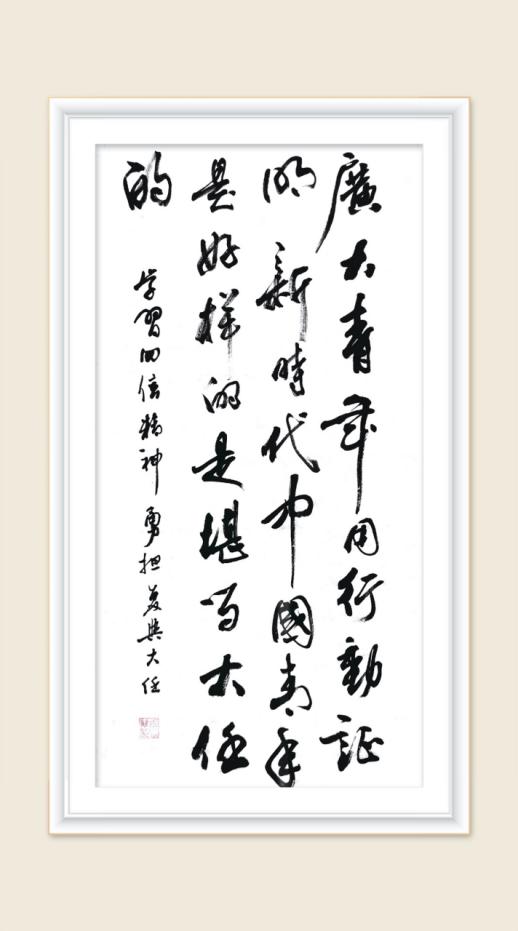 廣大青年用行動証
明新時代中國青年
是好樣的是堪當大任
的
学習回信精神勇担复興大任